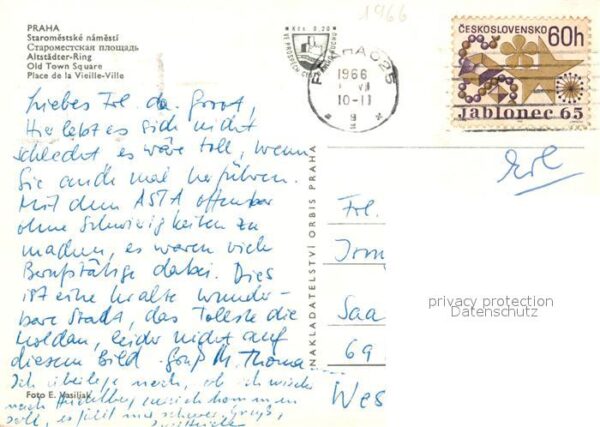 PRAHA
Staroměstské náměstí
Староместская площадь
Altstädter-Ring
Old Town Square
Place de la Vieille-Ville
1966
Kčs 0,20
PRAHA 025
1966
VII
10-11
ČESKOSLOVENSKO
60h
Jablonec 65
Liebes Frl. de Groot,
Hier lebt es sich nicht
schlecht, es wäre toll, wenn
Sie auch mal herführen.
Mit dem ASTA offenbar
ohne Schwierigkeiten zu
machen, es waren viele
Berufstätige dabei. Dies
ist eine uralte wunder-
bare Stadt, das Tollste die
Moldau, leider nicht auf
diesem Bild. Gruß M. Thoma
Ich überlege noch, ob ich wieder
nach Heidelberg zurückkommen
soll, es fällt mir schwer. Gruß,
Foto E. Vasiliak
NAKLADATELSTVÍ ORBIS PRAHA
Erl
Frl.
Irm
Saa
69
Wes
privacy protection
Datenschutz